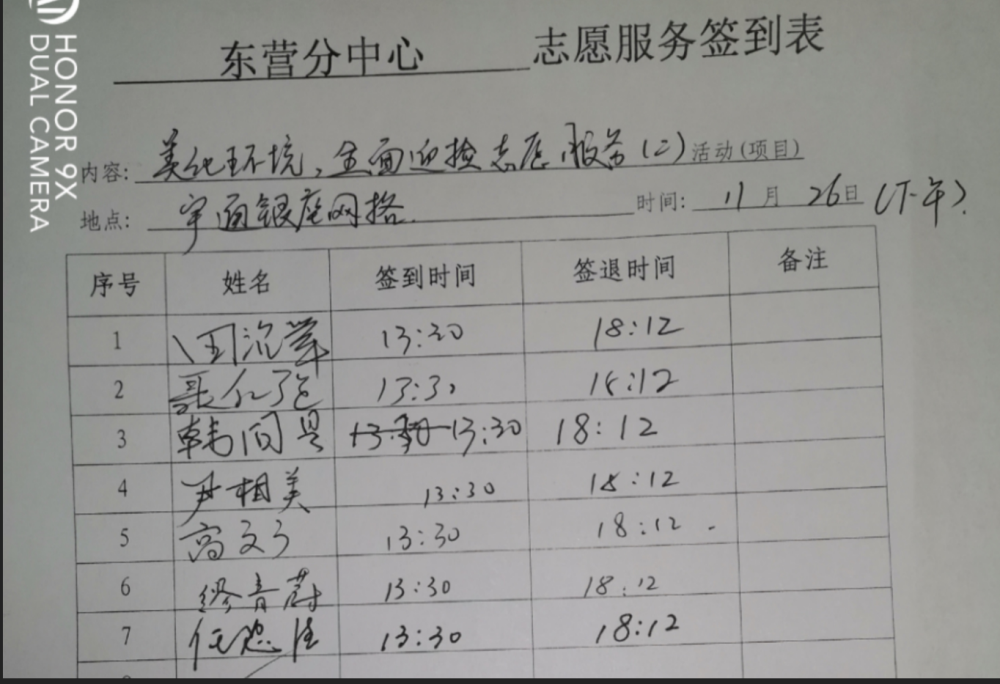 HONOR 9X
DUAL CAMERA
东营分中心 志愿服务签到表
内容: 美化环境、全面迎检志愿服务(二)活动(项目)
地点: 宇通银座网格. 时间: 11月 26日(下午).
序号 姓名 签到时间 签退时间 备注
1 13:30 18:12
2 13:30 18:12
3 韩 13:30 13:30 18:12
4 尹相美 13:30 18:12
5 高文 13:30 18:12
6 缪音蔚 13:30 18:12
7 任 13:30 18:12